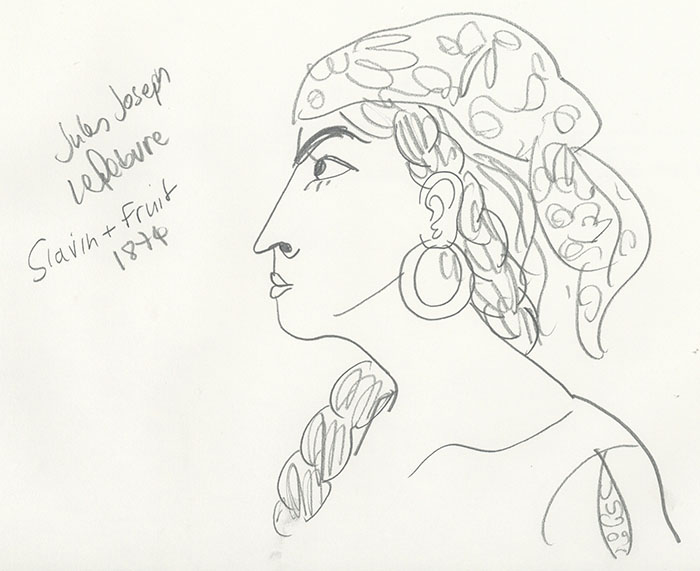 Jules Joseph
Lefebvre
Slavin + Fruit
1874